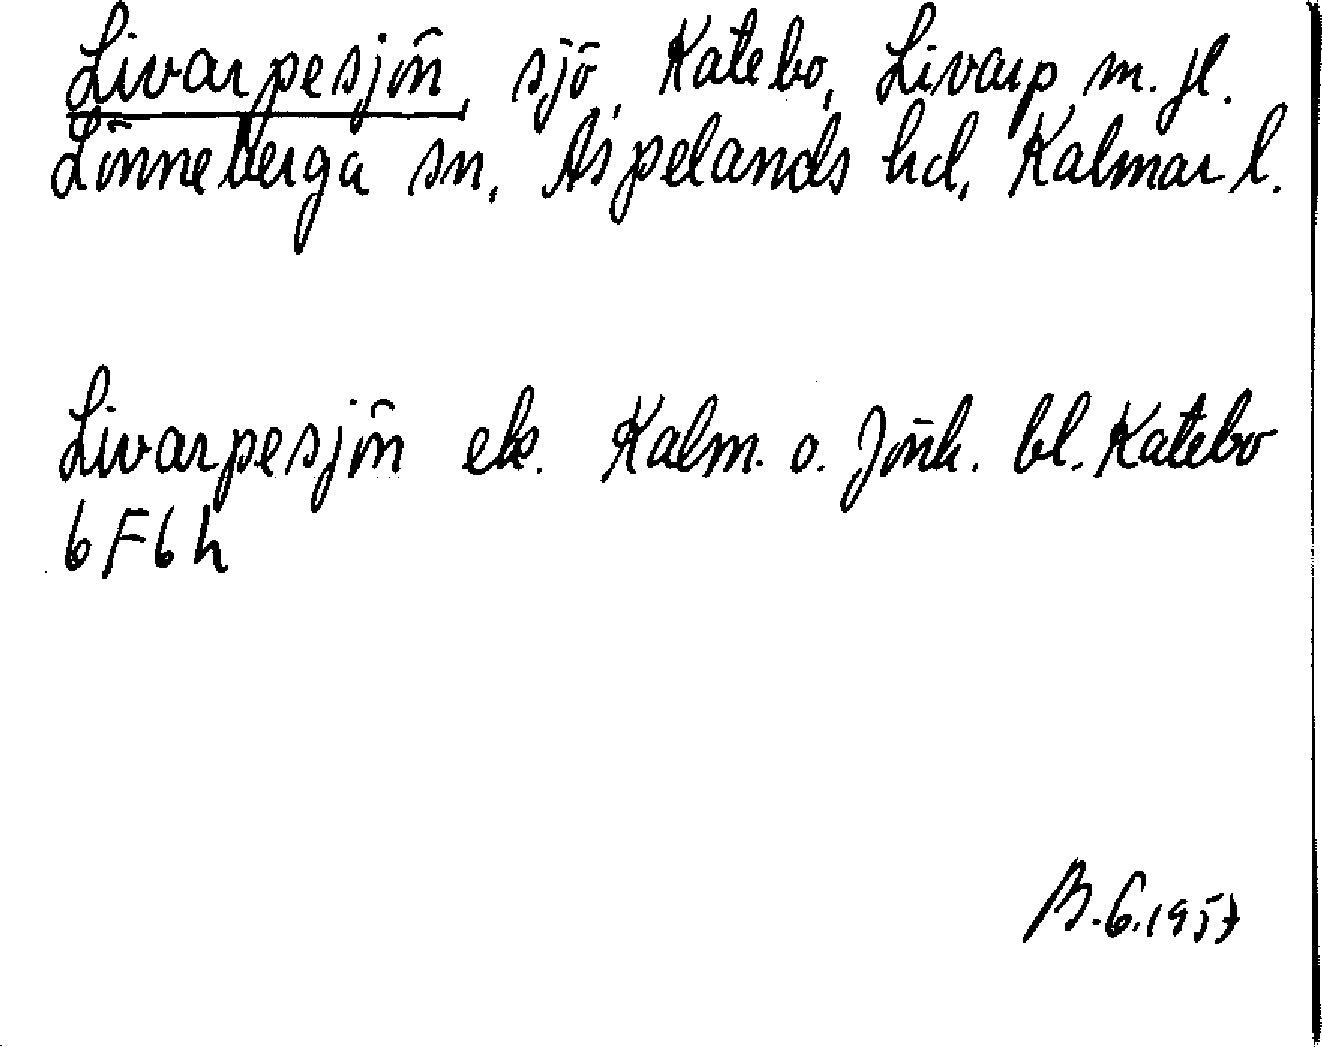 Livarpesjön, sjö, Katebo, Livarp m. fl.
Lönneberga sn, Aspelands hd, Kalmar l.
Livarpesjön ek. Kalm. o. Jönk. bl. Katebo
6F6h
B.G.1957